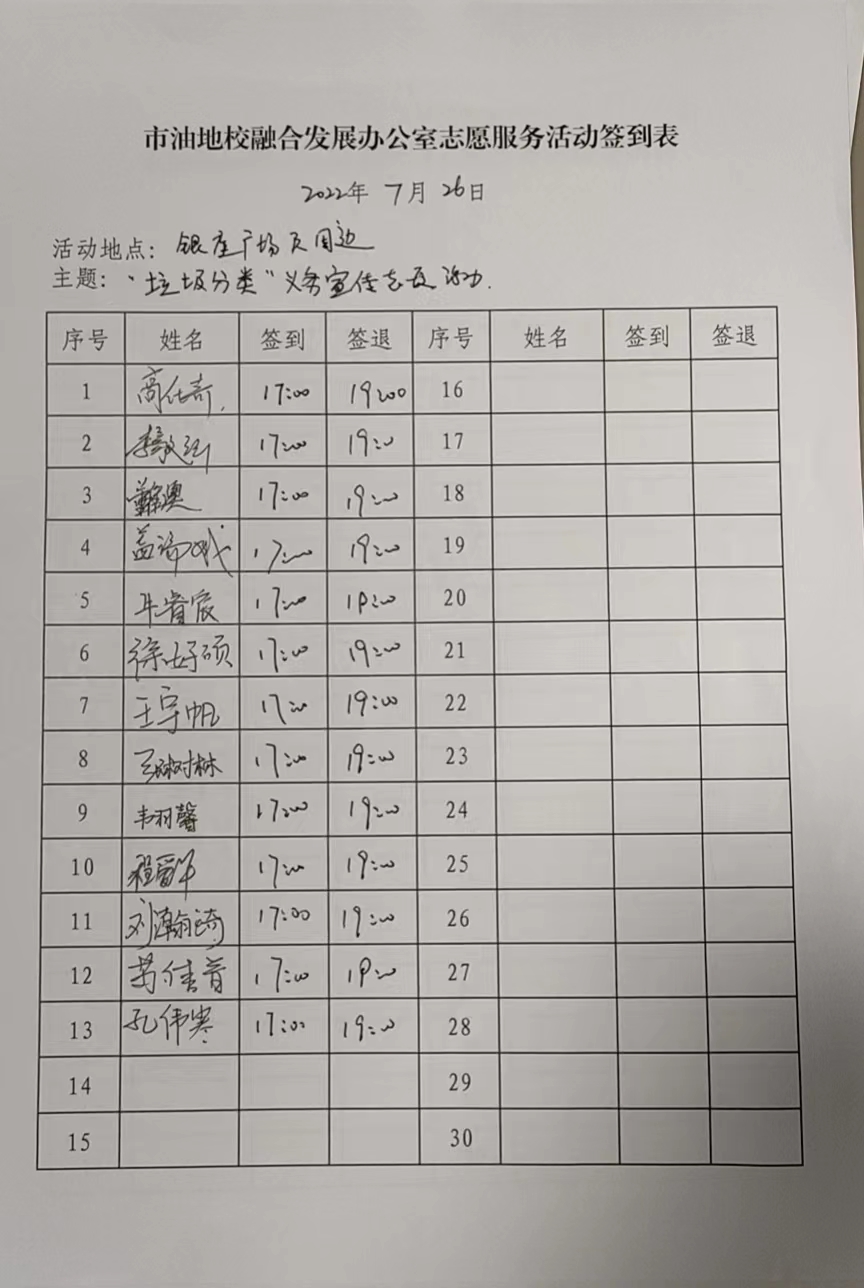 市油地校融合发展办公室志愿服务活动签到表
2022年 7月 26日
活动地点: 银座广场及周边
主题: "垃圾分类"义务宣传志愿活动.
序号 姓名 签到 签退 序号 姓名 签到 签退
1 高仕奇. 17:00 19:00 16
2 17:00 19:00 17
3 17:00 19:00 18
4 17:00 19:00 19
5 牛睿宸 17:00 19:00 20
6 徐好硕 17:00 19:00 21
7 王宇帆 17:00 19:00 22
8 17:00 19:00 23
9 韦羽馨 17:00 19:00 24
10 17:00 19:00 25
11 刘瀚琦 17:00 19:00 26
12 万佳音 17:00 19:00 27
13 孔伟寒 17:00 19:00 28
14 29
15 30